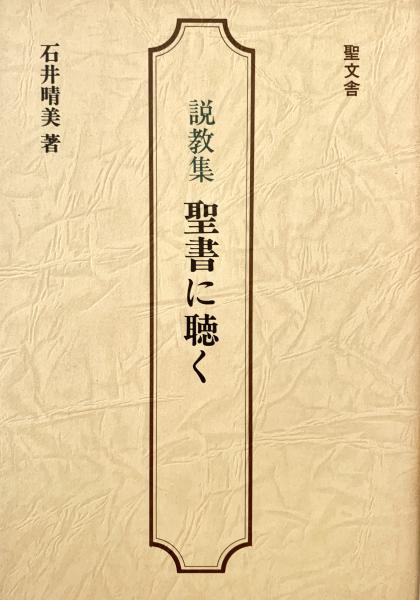 聖文舎
説教集 聖書に聴く
石井晴美 著